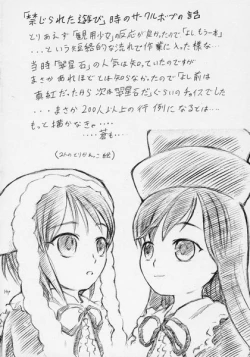 「禁じられた遊び」時のサークルポスターの話
とりあえず「観用少女」の反応が良かったので「よしもう一本」
...という短絡的な流れで作業に入った様な...
当時「翠星石」の人気は知っていたのですが
まさかあれほどとは知らなかったので「よし前は
真紅だったから次は翠星石だ」ぐらいのチョイスでした
...まさか200人以上の行列になるとは...
もっと描かなきゃ....
....蒼も..